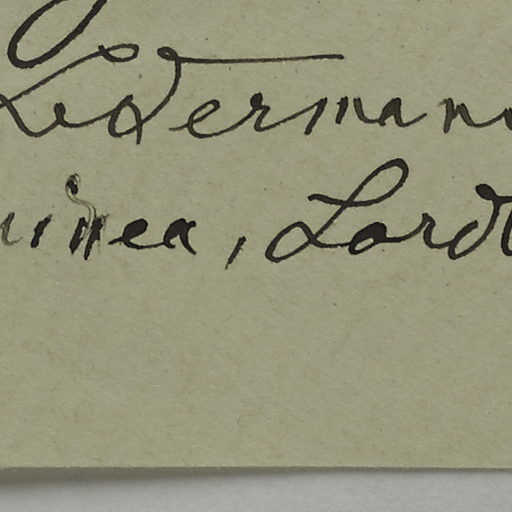 Ledermann
uinea, Lord